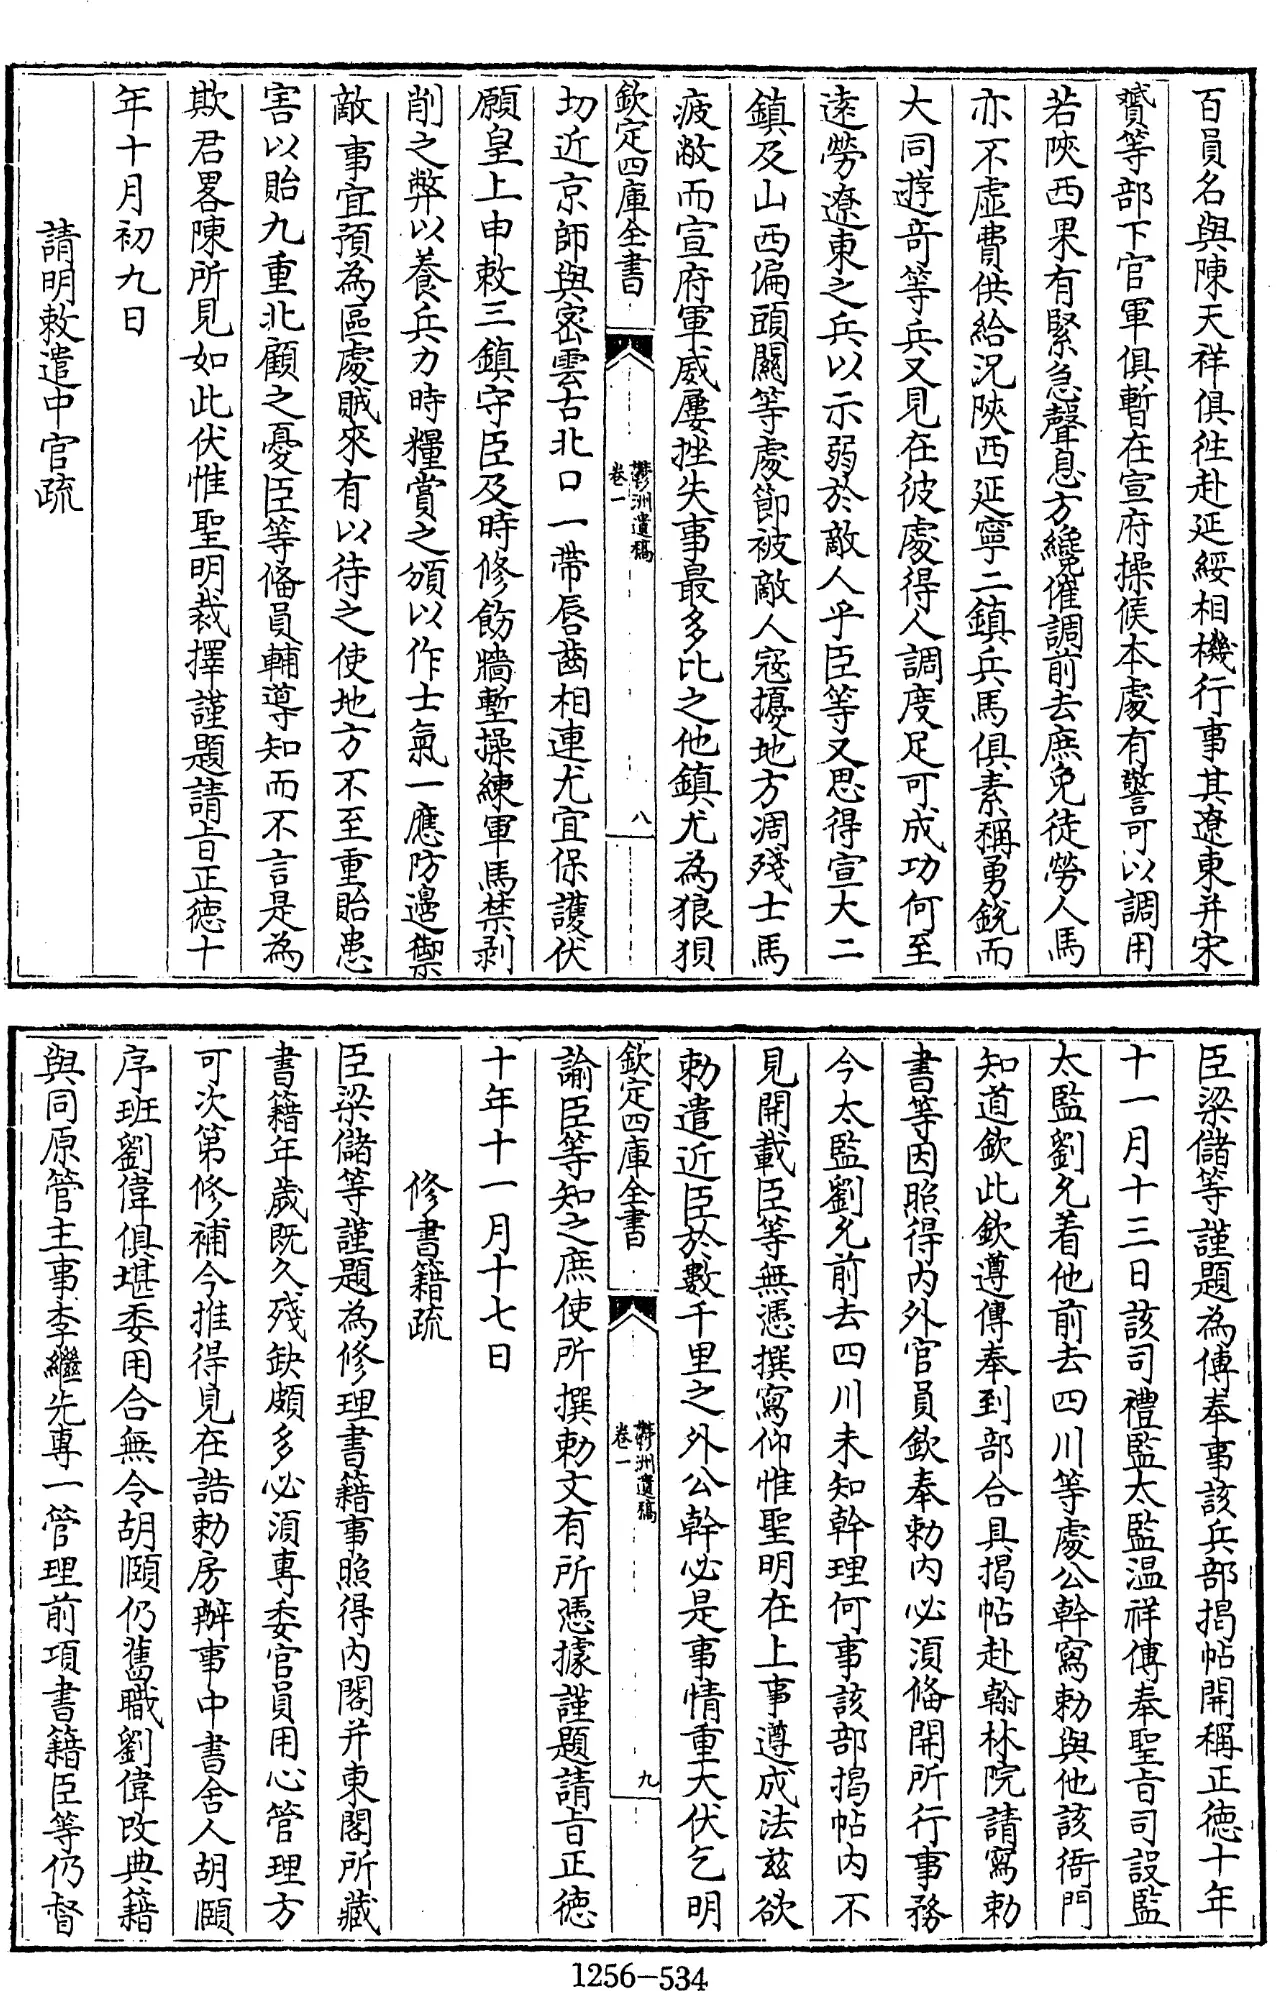 百員名與陳天祥俱徃赴延綏相機行事其遼東并宋
贇等部下官軍俱暫在宣府操候本處有警可以調用
若陝西果有緊急聲息方纔催調前去庶免徒勞人馬
亦不虛費供給況陝西延寧二鎮兵馬俱素稱勇銳而
大同遊竒等兵又見在彼處得人調度足可成功何至
遠勞遼東之兵以示弱於敵人乎臣等又思得宣大二
鎮及山西偏頭關等處節被敵人寇擾地方凋殘士馬
疲敝而宣府軍威屢挫失事最多比之他鎮尤為狼狽
欽定四庫全書
鬱洲遺稿
卷一
八
切近京師與宻雲古北口一帶唇齒相連尤宜保護伏
願皇上申敕三鎮守臣及時修飭牆塹操練軍馬禁剥
削之弊以養兵力時糧賞之頒以作士氣一應防邊禦
敵事宜預為區處賊來有以待之使地方不至重貽患
害以貽九重北顧之憂臣等備員輔導知而不言是為
欺君畧陳所見如此伏惟聖明裁擇謹題請㫖正徳十
年十月初九日
請明敕遣中官疏
臣梁儲等謹題為傳奉事該兵部揭帖開稱正徳十年
十一月十三日該司禮監太監温祥傳奉聖㫖司設監
太監劉允着他前去四川等處公幹寫勅與他該衙門
知道欽此欽遵傳奉到部合具揭帖赴翰林院請寫勅
書等因照得内外官員欽奉勅内必須備開所行事務
今太監劉允前去四川未知幹理何事該部揭帖内不
見開載臣等無憑撰寫仰惟聖明在上事遵成法兹欲
勅遣近臣於數千里之外公幹必是事情重大伏乞明
欽定四庫全書
鬱洲遺稿
卷一
九
諭臣等知之庶使所撰勅文有所憑據謹題請㫖正徳
十年十一月十七日
修書籍疏
臣梁儲等謹題為修理書籍事照得内閣并東閣所藏
書籍年歲既久殘缺頗多必須專委官員用心管理方
可次第修補今推得見在誥勅房辦事中書舍人胡頤
序班劉偉俱堪委用合無令胡頤仍舊職劉偉改典籍
與同原管主事李繼先專一管理前項書籍臣等仍督
1256-534